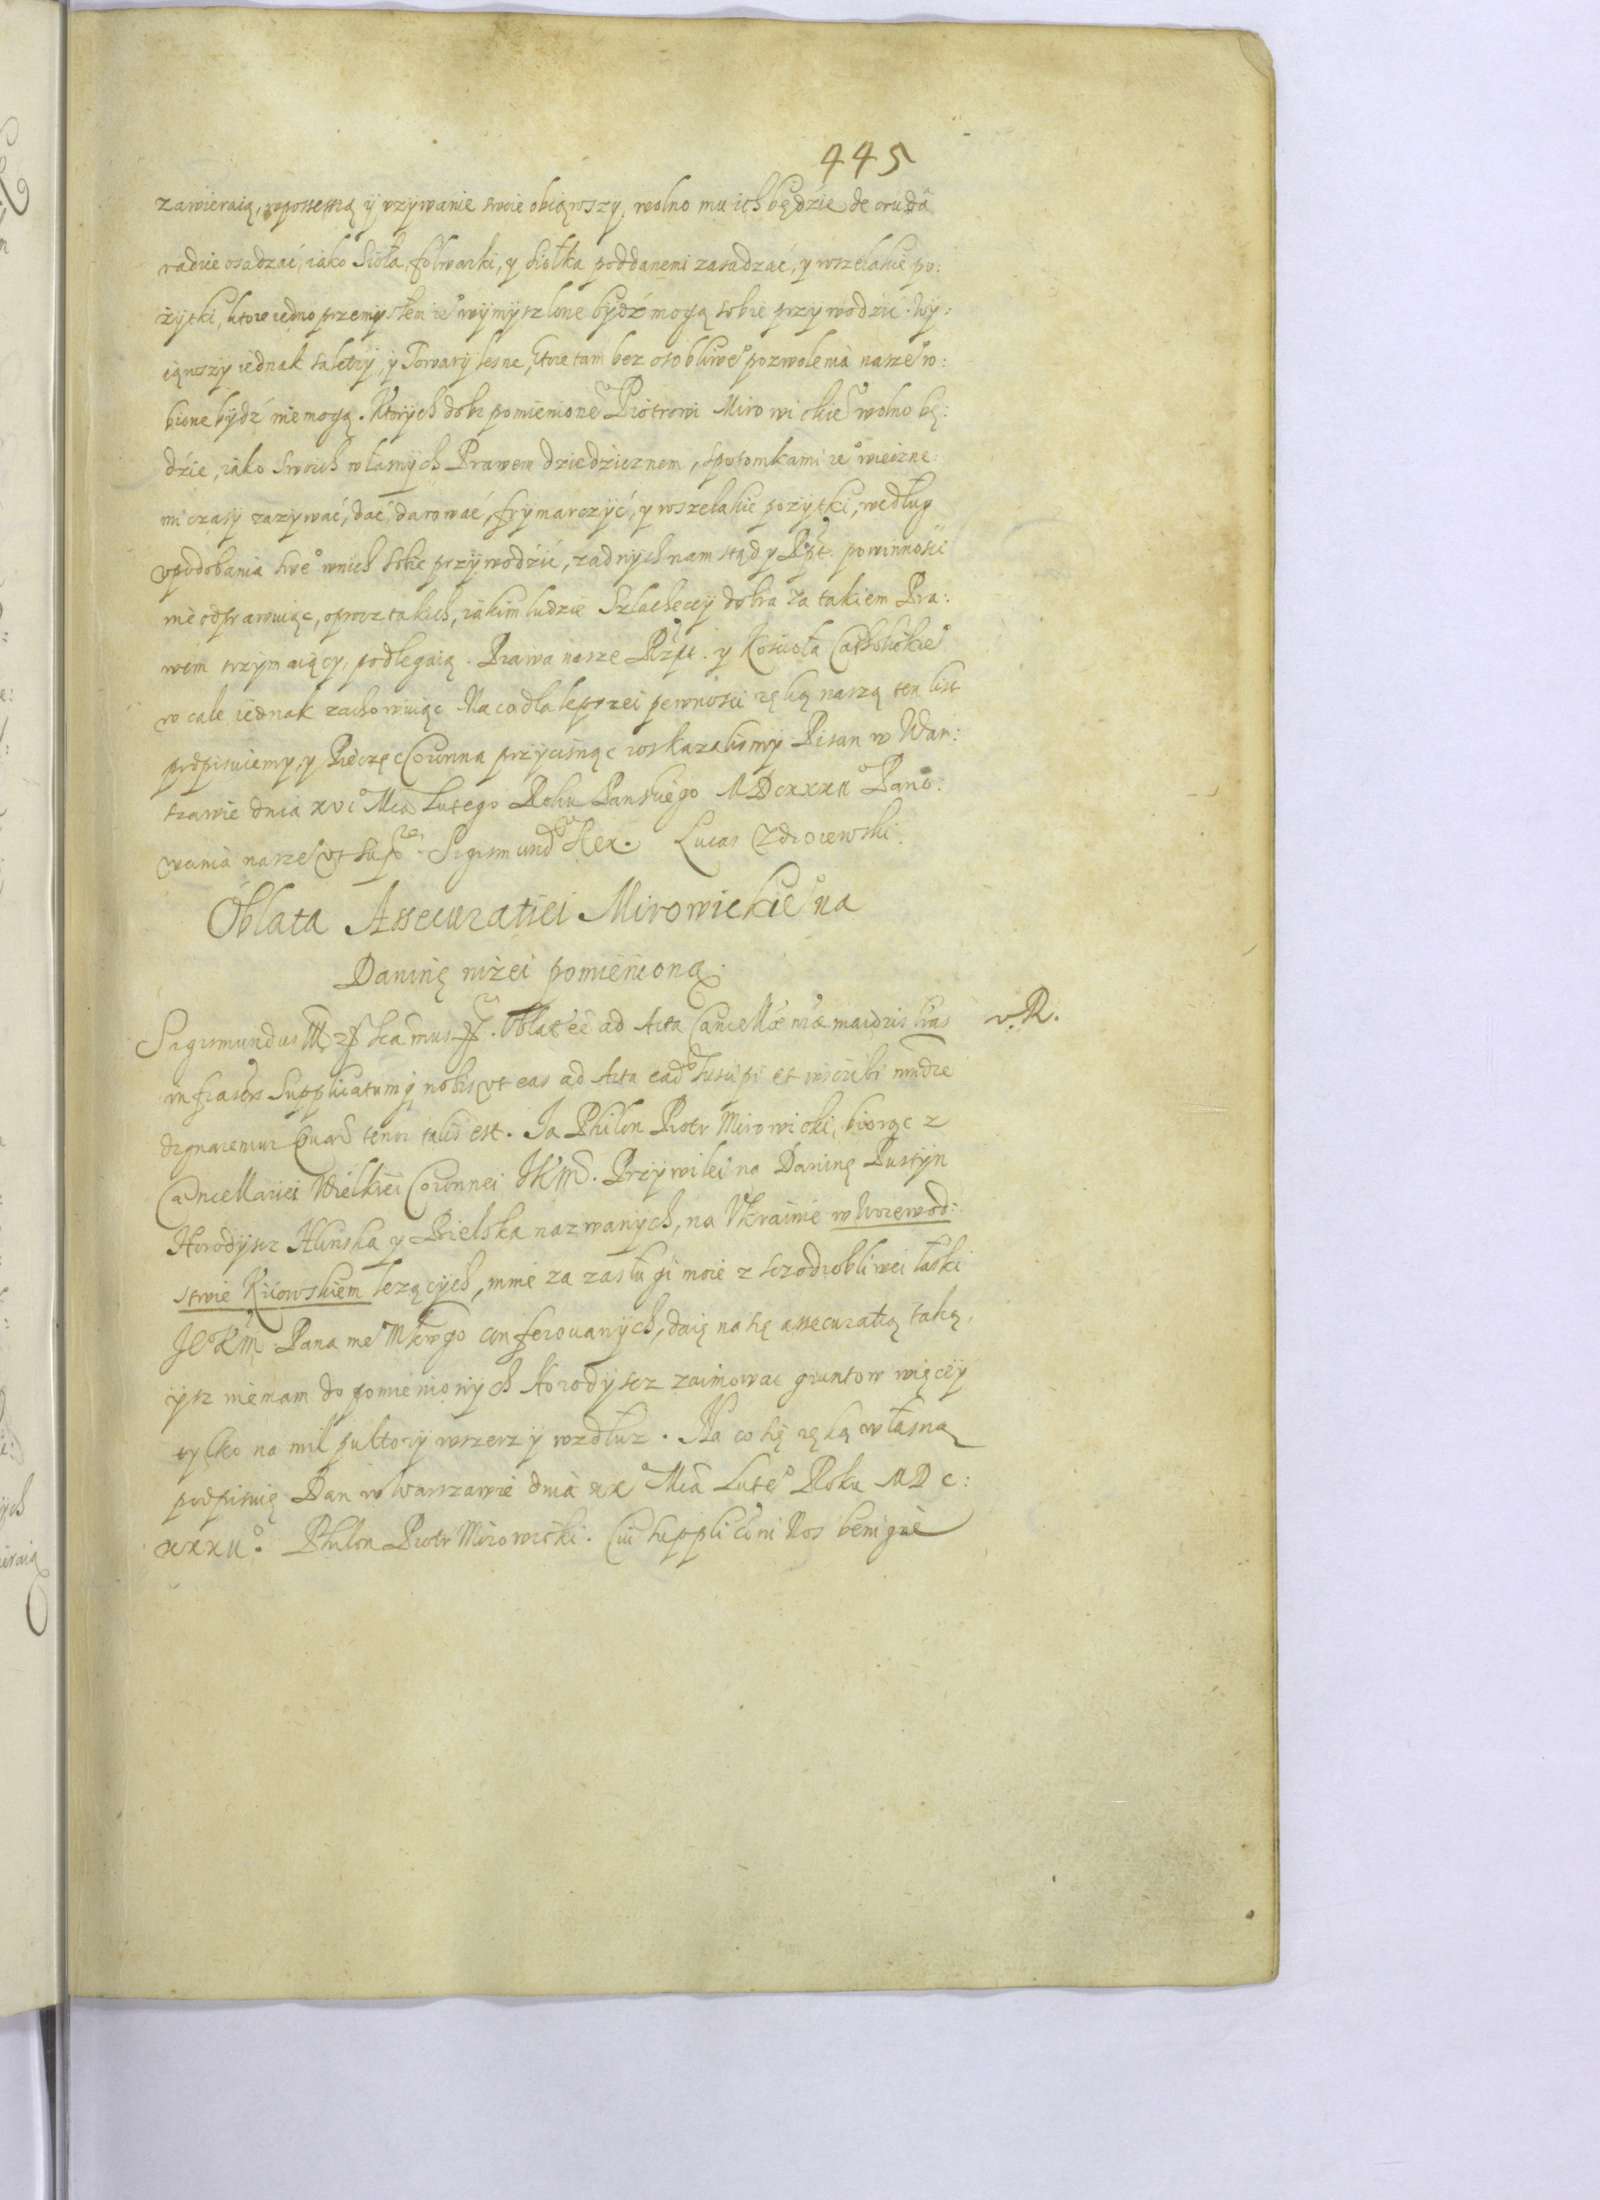 445
zawieraią, w possessią y vzywanie swoie obiąwszy, wolno mu ich będzie de cruda
radice osadzać, iako Sioła, folwarki, y siołka poddanemi zasadzać, y wszelakie po:
żytki, ktore iedno przemysłem ie° wymyszlone bydź mogą sobie przywodzić. Wy:
iąwszy iednak saletry, y Towary lesne, ktore tam bez osobliwe° pozwolenia nasze° ro:
bione bydź nie mogą. Ktorych dobr pomienione° Piotrowi Mirowickie° wolno bę:
dzie, iako swoich własnych Prawem dziedzicznem, s potomkami ie° wieczne:
mi czasy zazywać, dać, darować, frymarczyć, y wszelakie pozytki, według
vpodobania swe° w nich sobie przywodzić, zadnych nam stąd y Rzpt. powinnosci
nie odprawuiąc, oprocz takich, iakim ludzie Szlacheccy dobra za takiem Pra:
wem trzymaiący, podlegaią. Prawa nasze Rzpt. y Koscioła Catholickie°
w cale iednak zachowuiąc. Na co dla lepszei pewnosci ręką naszą ten list
podpisuiemy, y Pieczęc Coronna przycisnąc roskazalismy. Pisan w War:
szawie dnia XVI Mca Lutego Roku Panskiego MDCXXXII° Pano:
wania nasze° vt supr. Sigismund° Rex. Lucas Zdroiewski.
Oblata Assecuratiei Mirowickie° na
Daninę niżei pomienioną.
Sigismundus III etc. Sca mus etc. Oblat' eē ad Acta Cancellæ nræ maioris lras v. R.
infrascrs Supplicatumq nobis vt eas ad Acta ead° suscipi et inscribi mndre
dignaremur Quaru tenor talis est. Ja Philon Piotr Mirowicki, biorąc z
Cancellariei Wielkiei Coronnei JKM. Przywilei na Daninę Pustyn
Horodyscz Hlinska y Pielska nazwanych, na Vkrainie w Woiewod:
stwie Kiiowskiem lezących, mnie za zasługi moie z sczodrobliwei łaski
Je° KM Pana me° Młwego conferowanych, daię na się assecuratią taką,
ysz nie mam do pomienionych Horodyscz zaimowac gruntow więcey
tylko na mil pułtory wszerz y wzdłuz. Na co się ręką własną
podpisuię Dan w Warszawie dnia XX Mca Lute° Roku MDC:
XXXII°. Philon Piotr Mirowicki. Cui supplicōni Nos benigne